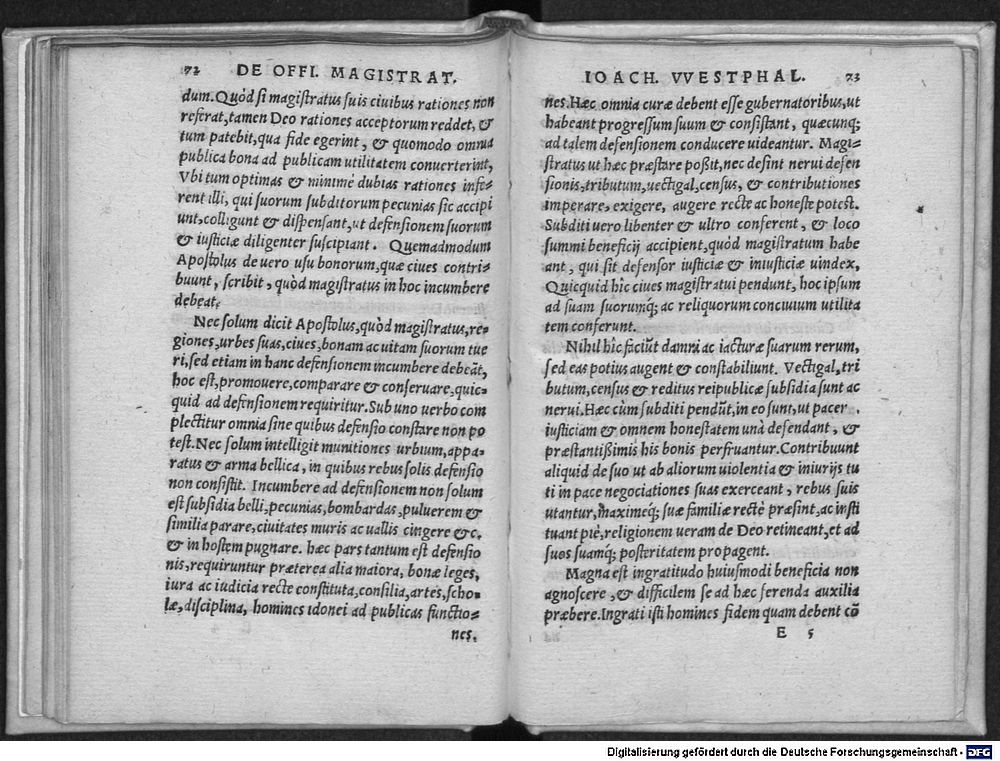 72 DE OFFI. MAGISTRAT.
dum. Quòd si magistratus suis ciuibus rationes non
referat, tamen Deo rationes acceptorum reddet, &
tum patebit, qua fide egerint, & quomodo omnia
publica bona ad publicam utilitatem conuerterint,
Vbi tum optimas & minimè dubias rationes infe-
rent illi, qui suorum subditorum pecunias sic accipi
unt, colligunt & dispensant, ut defensionem suorum
& iusticiæ diligenter suscipiant. Quemadmodum
Apostolus de uero usu bonorum, quæ ciues contri-
buunt, scribit, quòd magistratus in hoc incumbere
debeat.
Nec solum dicit Apostolus, quòd magistratus, re-
giones, urbes suas, ciues, bonam ac uitam suorum tue
ri, sed etiam in hanc defensionem incumbere debeãt,
hoc est, promouere, comparare & conseruare, quic-
quid ad defensionem requiritur. Sub uno uerbo com
plectitur omnia sine quibus defensio constare non po
test. Nec solum intelligit munitiones urbium, appa-
ratus & arma bellica, in quibus rebus solis defensio
non consistit. Incumbere ad defensionem non solum
est subsidia belli, pecunias, bombardas, puluerem &
similia parare, ciuitates muris ac uallis cingere &c.
& in hostem pugnare. hæc pars tantum est defensio
nis, requiruntur præterea alia maiora, bonæ leges,
iura ac iudicia recte constituta, consilia, artes, scho-
læ, disciplina, homines idonei ad publicas functio-
nes.
IOACH. VVESTPHAL. 73
nes. Hæc omnia curæ debent esse gubernatoribus, ut
habeant progressum suum & consistant, quæcunq;
ad talem defensionem conducere uideantur. Magi-
stratus ut hæc præstare poßit, nec desint nerui defen
sionis, tributum, uectigal, census, & contributiones
imperare, exigere, augere recte ac honeste potest.
Subditi uero libenter & ultro conferent, & loco
summi beneficij accipient, quòd magistratum habe
ant, qui sit defensor iusticiæ & iniusticiæ uindex,
Quicquid hîc ciues magistratui pendunt, hoc ipsum
ad suam suorumq; ac reliquorum conciuium utilita
tem conferunt.
Nihil hîc faciũt damni ac iacturæ suarum rerum,
sed eas potius augent & constabiliunt. Vectigal, tri
butum, census & reditus reipublicæ subsidia sunt ac
nerui. Hæc cùm subditi pendũt, in eo sunt, ut pacem
iusticiam & omnem honestatem unà defendant, &
præstantißimis his bonis perfruantur. Contribuunt
aliquid de suo ut ab aliorum uiolentia & iniurijs tu
ti in pace negociationes suas exerceant, rebus suis
utantur, maximeq; suæ familiæ rectè præsint, ac insti
tuant piè, religionem ueram de Deo retineant, et ad
suos suamq; posteritatem propagent.
Magna est ingratitudo huiusmodi beneficia non
agnoscere, & difficilem se ad hæc ferenda auxilia
præbere. Ingrati isti homines fidem quam debent cõ
E 5
Digitalisierung gefördert durch die Deutsche Forschungsgemeinschaft - DFG